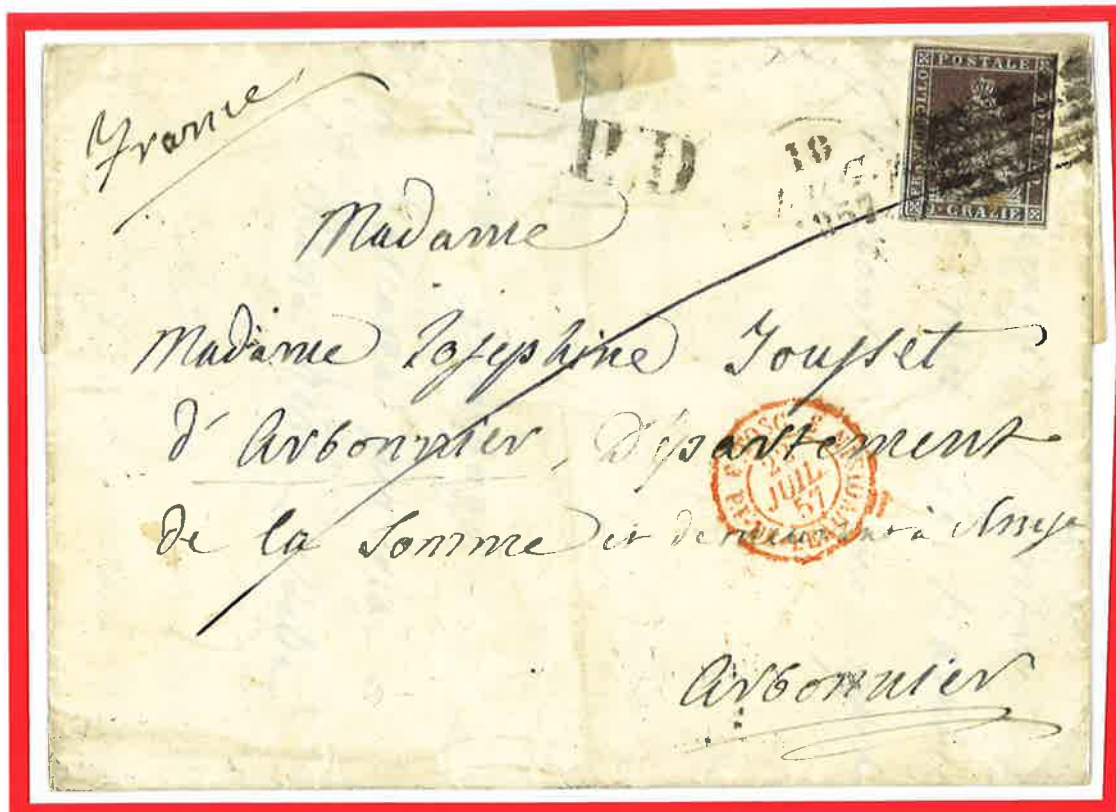 France
P.D
18
LUG
1857
FRANCOBOLLO POSTALE TOSCANO
9 CRAZIE
Madame
Madame Josephine Jousset
d'Arbonnier, Département
de la Somme et demeurant à
TOSC.
JUIL
57
Arbonnier